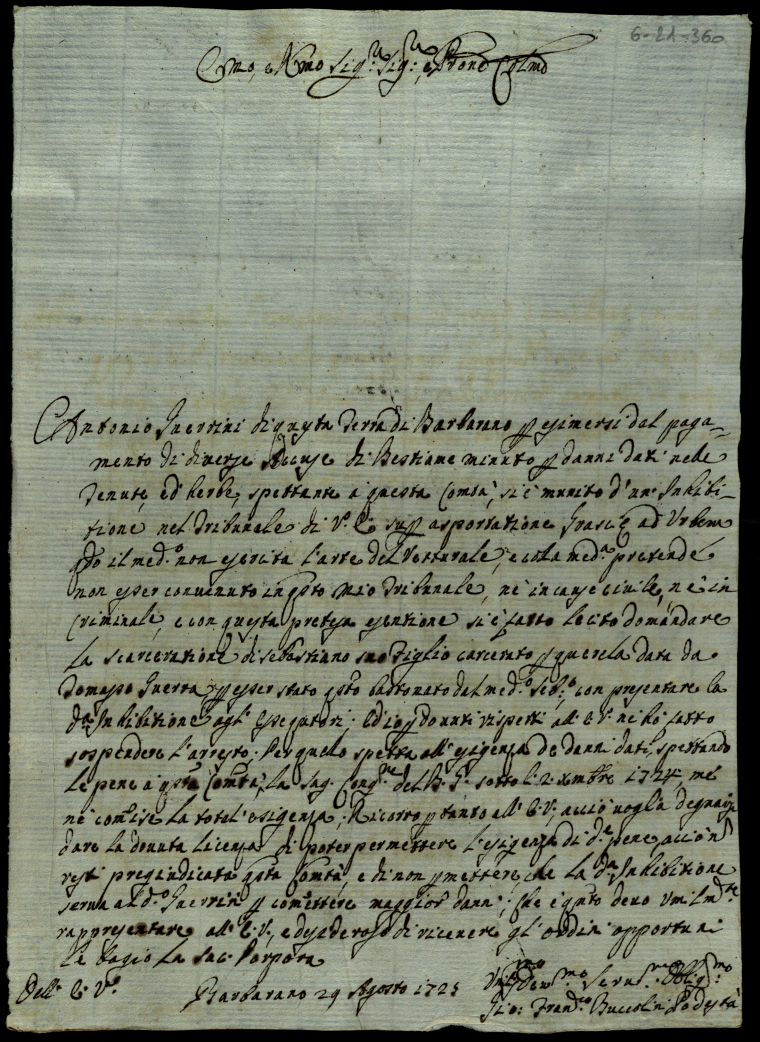 6-21-360
Emo, e Rmo Sig.re Sig.re, e Prone Colmo
Antonio Guerrini di questa Terra di Barbarano p esimersi dal paga-
mento di diverse Accuse di Bestiame minuto p danni dati nelle
Tenute, ed herbe, spettante a questa Comtà, si è munito d'un' Inhibi-
tione nel Tribunale di V. E. sup asportatione Grasciæ ad Urbem
il med.o non esercita l'arte del Vetturale, e colla med.a pretende
non esser convenuto in qsto mio Tribunale, nè in cause civile, nè in
Criminale, e con questa pretesa esentione si è fatto lecito domandare
la scarceratione di Sebastiano suo Figlio carcerato p querela data da
Tomasso Guerra p esser stato qsto bastonato dal med.o Seb.o, con presentare la
d.a Inhibitione agl' Esegutori. Ed io p dovuti rispetti all' E. V. ne hò fatto
sospendere l'arresto. Per quello spetta all' esigenza de danni dati, spettando
le pene a qsta Comtà, la Sag. Cong.ne del B. G. sotto li 2. Xmbre 1724, me
ne comise la total' esigenza; Ricorro p tanto all' E. V., acciò voglia degnarsi
dare la dovuta licenza di poter permettere l'esigenza di d.e pene, acciò non
resti pregiudicata qsta Comtà, e di non pmettere, che la d.a Inhibitione
serva al d.o Guerrini p comettere maggior danni; che è qnto devo umilm.te
rappresentare all' E. V., e desideroso di ricevere gl' ordini opportuni
le bagio la Sac. Porpora
Dell' E. V.a
Barbarano 29 Agosto 1725
Um.mo Dev.mo Serv.re Oblig.mo
Gio: Fran.co Buccolini Podestà